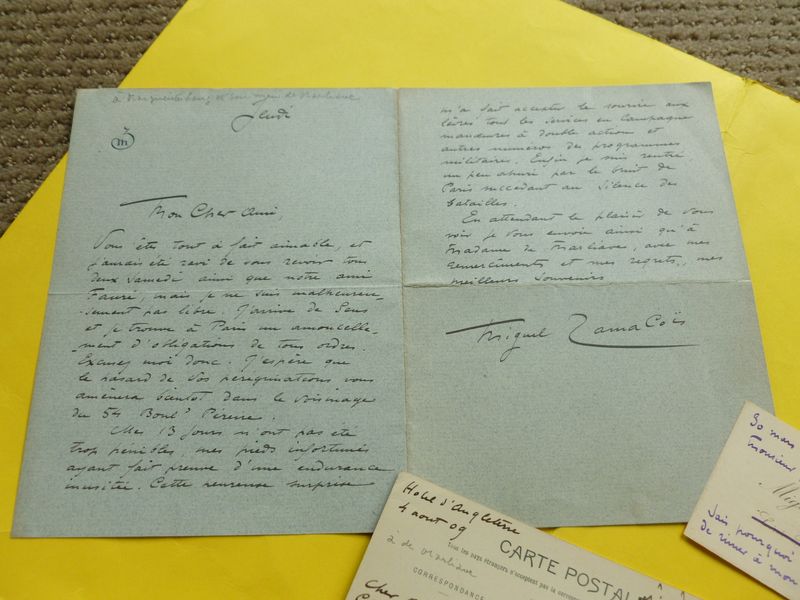 Jeudi
m
Mon Cher Ami,
Vous êtes tout à fait aimable, et
j'aurais été ravi de vous revoir tous
deux samedi ainsi que notre ami
Fauré, mais je ne suis malheureu-
-sement pas libre. J'arrive de Sens
et je trouve à Paris un amoncelle-
-ment d'obligations de tous ordres.
Excusez moi donc. J'espère que
le hasard de vos pérégrinations vous
amènera bientôt dans le voisinage
du 54 Boul.d Pereire.
Mes 13 jours n'ont pas été
trop pénibles, mes pieds infortunés
ayant fait preuve d'une endurance
inusitée. Cette heureuse surprise
m'a fait accepter le sourire aux
lèvres tout les services en Campagne
manœuvres à double action et
autres numéros des programmes
militaires. Enfin je suis rentré
un peu ahuri par le bruit de
Paris succédant au silence des
batailles.
En attendant le plaisir de vous
voir je vous envoie ainsi qu'à
Madame de Marliave, avec mes
remerciments et mes regrets, mes
meilleurs souvenirs
Miguel Zamacoïs
Hotel d'Angleterre
4 aout 09
à de Marliave
Tous les pays étrangers n'acceptent pas la corresp
CARTE POSTAL
CORRESPONDANCE
Cher
30 mars
Monsieur
Mig
Sais pourquoi
de rimer à mon